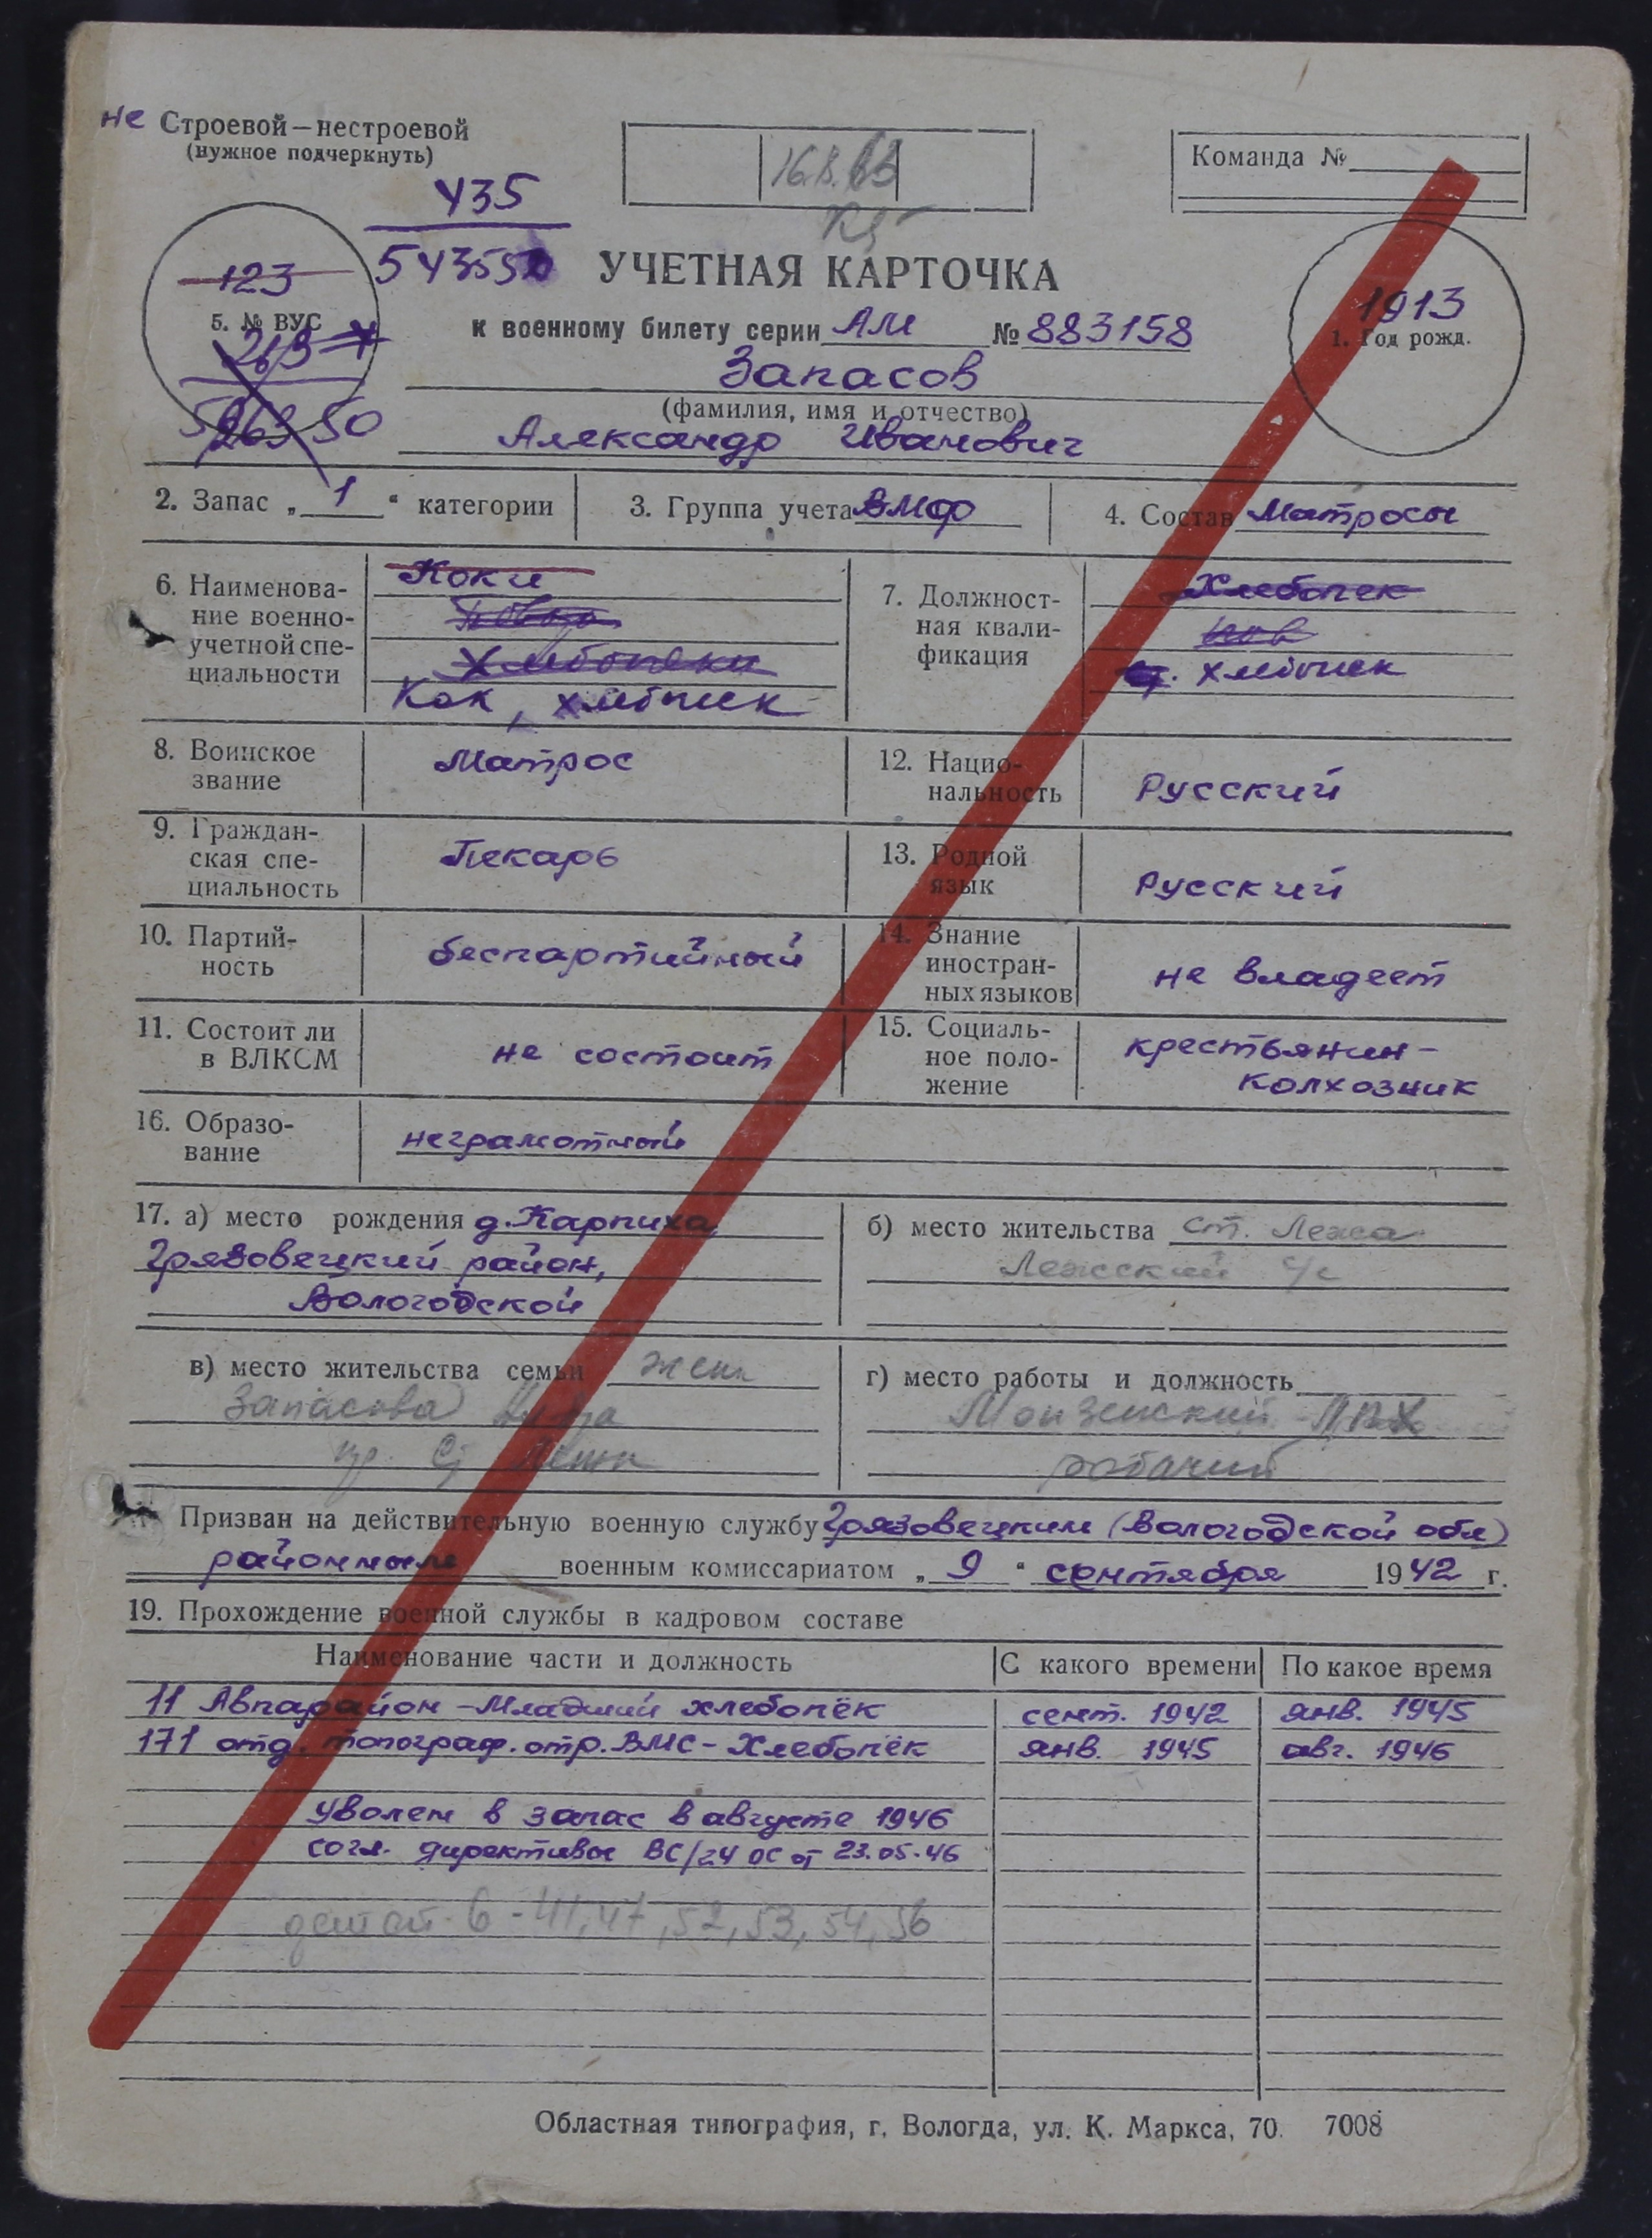 не Строевой—нестроевой
(нужное подчеркнуть)
Команда №
435
54355
123
5. № ВУС
УЧЕТНАЯ КАРТОЧКА
к военному билету серии АМ № 883158
1913
1. Год рожд.
Запасов
(фамилия, имя и отчество)
Александр Иванович
2. Запас „ 1 “ категории
3. Группа учета ВМФ
4. Состав Матросы
6. Наименова-
ние военно-
учетной спе-
циальности
Коки
Хлебопеки
Кок, хлебопек
7. Должност-
ная квали-
фикация
Хлебопек
ст. хлебопек
8. Воинское
звание
Матрос
12. Нацио-
нальность
Русский
9. Граждан-
ская спе-
циальность
Пекарь
13. Родной
язык
Русский
10. Партий-
ность
беспартийный
14. Знание
иностран-
ных языков
не владеет
11. Состоит ли
в ВЛКСМ
не состоит
15. Социаль-
ное поло-
жение
крестьянин-
колхозник
16. Образо-
вание
неграмотный
17. а) место рождения д. Карпиха,
Грязовецкий район,
Вологодской
б) место жительства ст. Лежа
Лежский с/с
в) место жительства семьи жена
Запасова
г) место работы и должность
Монзенский ЛПХ
рабочий
Призван на действительную военную службу Грязовецким (Вологодской обл)
районным военным комиссариатом „ 9 “ сентября 1942 г.
19. Прохождение военной службы в кадровом составе
Наименование части и должность С какого времени По какое время
11 Авпарайон - Младший хлебопёк сент. 1942 янв. 1945
171 отд. топограф. отр. ВМС - Хлебопёк янв. 1945 авг. 1946
Уволен в запас в августе 1946
согл. директивы ВС/24 ОС от 23.05.46
детей 6 - 41, 47, 52, 53, 54, 56
Областная типография, г. Вологда, ул. К. Маркса, 70. 7008